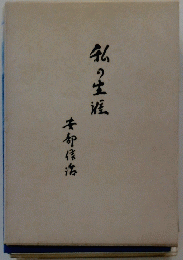 私の生涯
安部信治